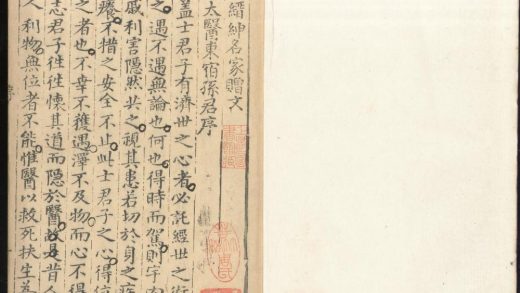 縉紳名家贈文
太醫東宿孫君序
蓋士君子有濟世之心者必託經世之術
之遇不遇無論也何也得時而駕則宇内
戚利害隱然共之視其患若切於身之疾
癢不措之安全不止此士君子之心得位
之者也不幸不獲遇澤不及物而心不得
志君子徃徃懷其道而隱於醫故是昔人
人利物無位者不能惟醫以救死扶生為